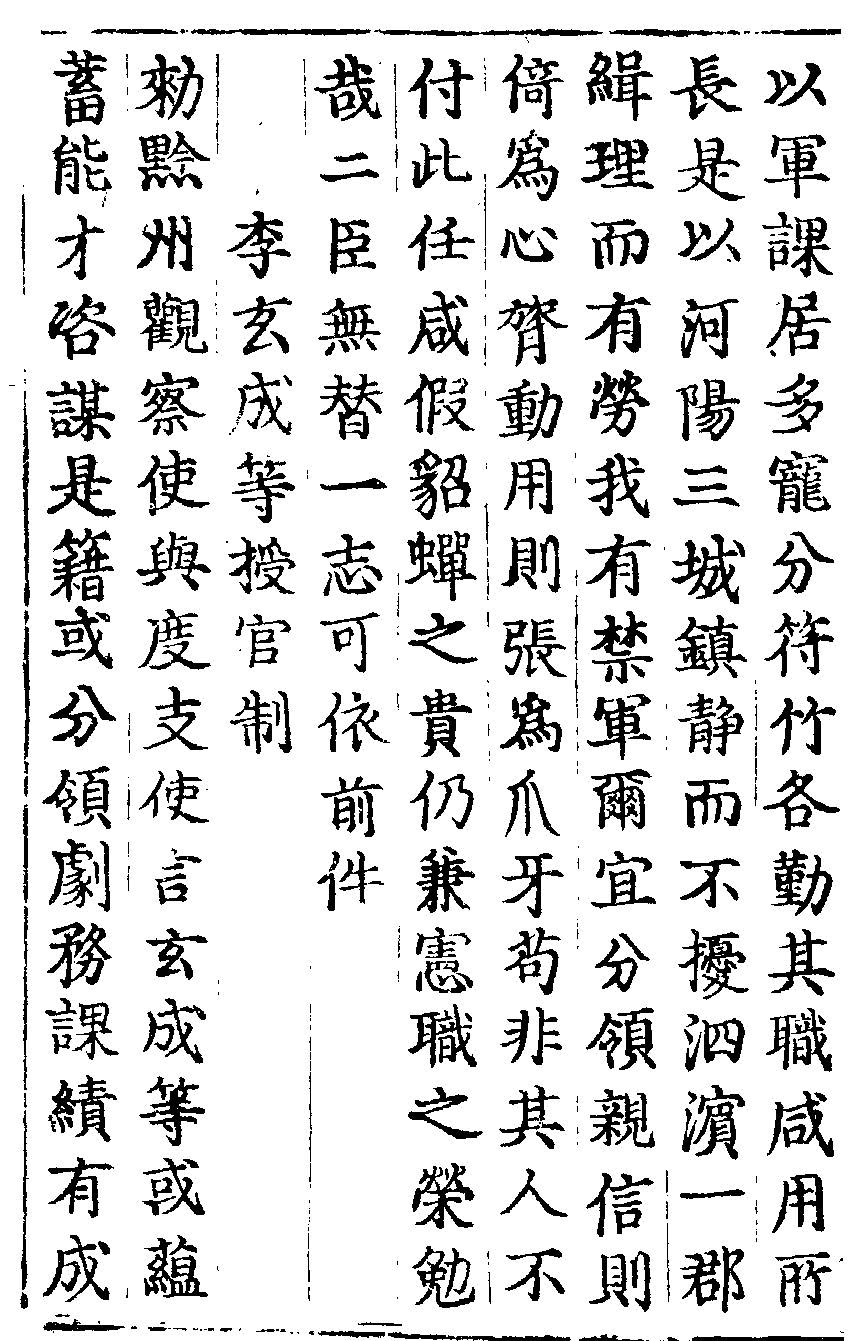 以軍課居多寵分符竹各勤其職咸用所
長是以河陽三城鎮静而不擾泗濵一郡
緝理而有勞我有禁軍爾宜分領親信則
倚爲心膂動用則張爲爪牙茍非其人不
付此任咸假貂蟬之貴仍兼憲職之榮勉
哉二臣無替一志可依前件
李玄成等授官制
勑黔州觀察使與度支使言玄成等或藴
蓄能才咨謀是籍或分領劇務課績有成